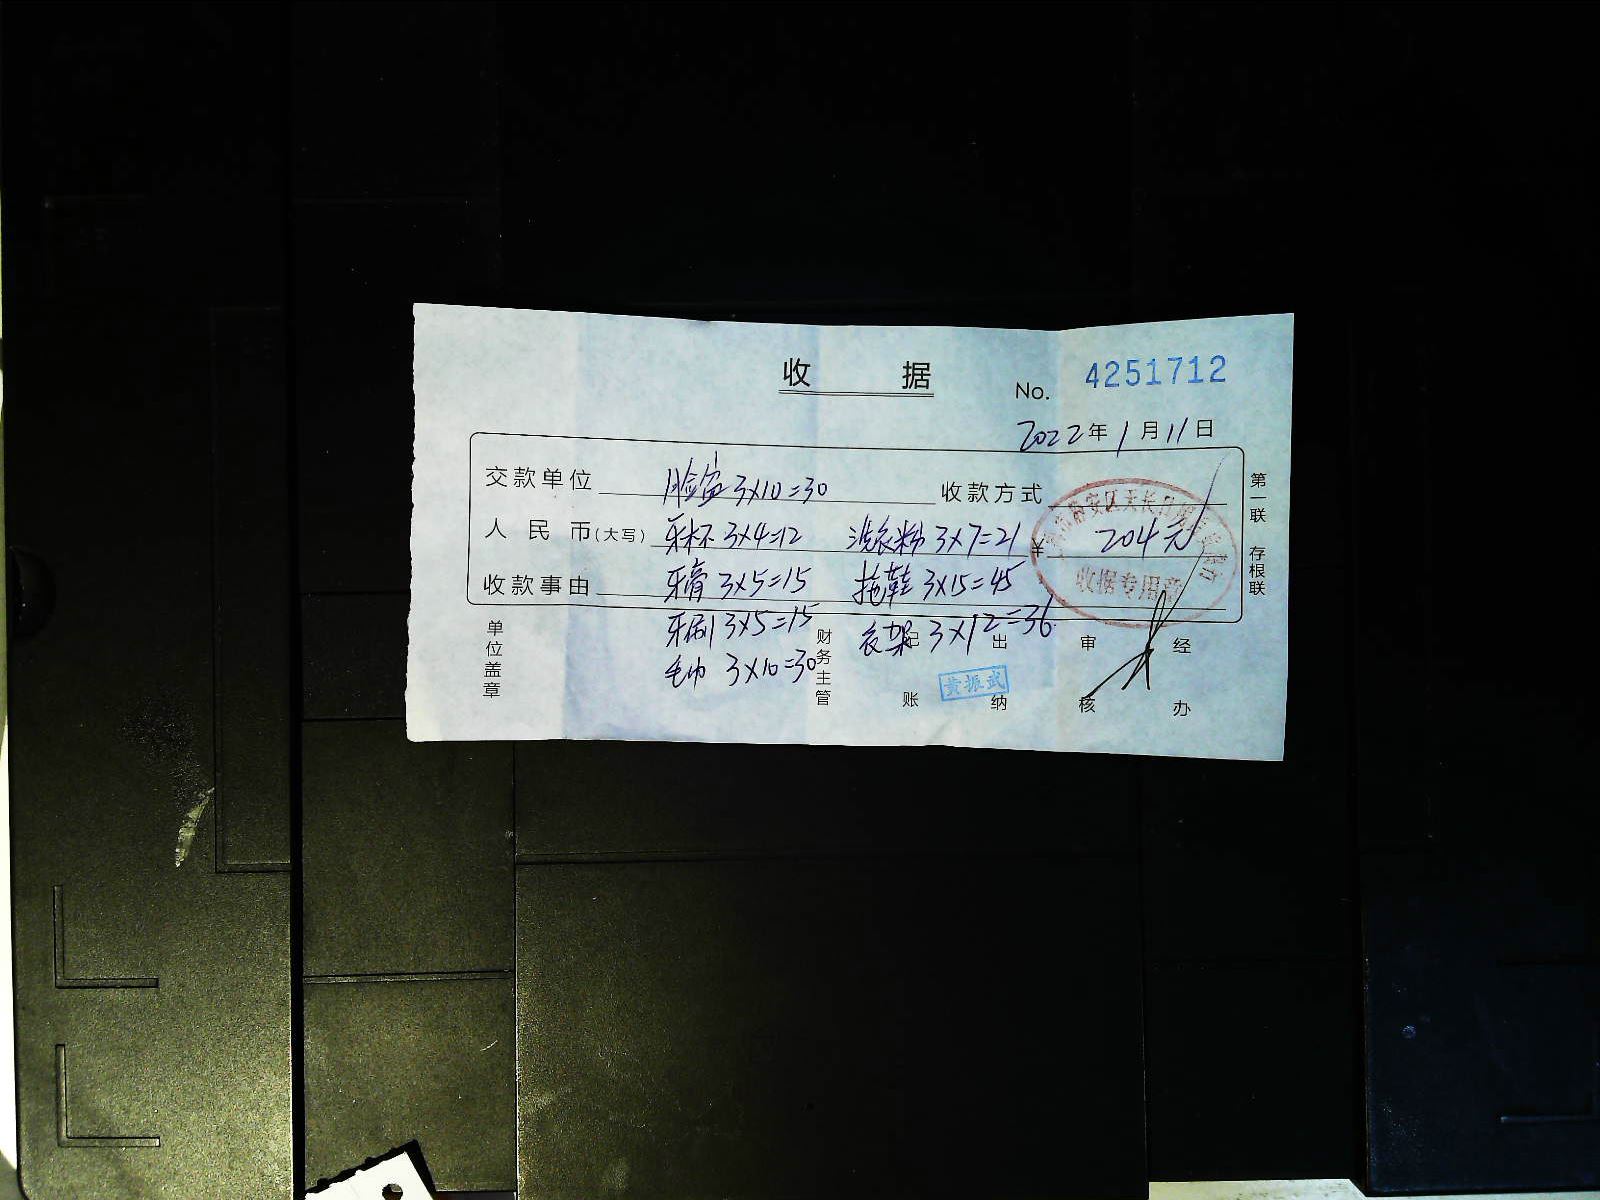 收 据
No. 4251712
2022年1月11日
交款单位 脸盆 3×10=30 收款方式
人民币(大写) 牙杯 3×4=12 洗衣粉 3×7=21 ¥ 204元
收款事由 牙膏 3×5=15 拖鞋 3×15=45
牙刷 3×5=15 衣架 3×12=36
毛巾 3×10=30
收据专用章
单位盖章 财务主管 记账 出纳 审核 经办
黄振武
第一联 存根联